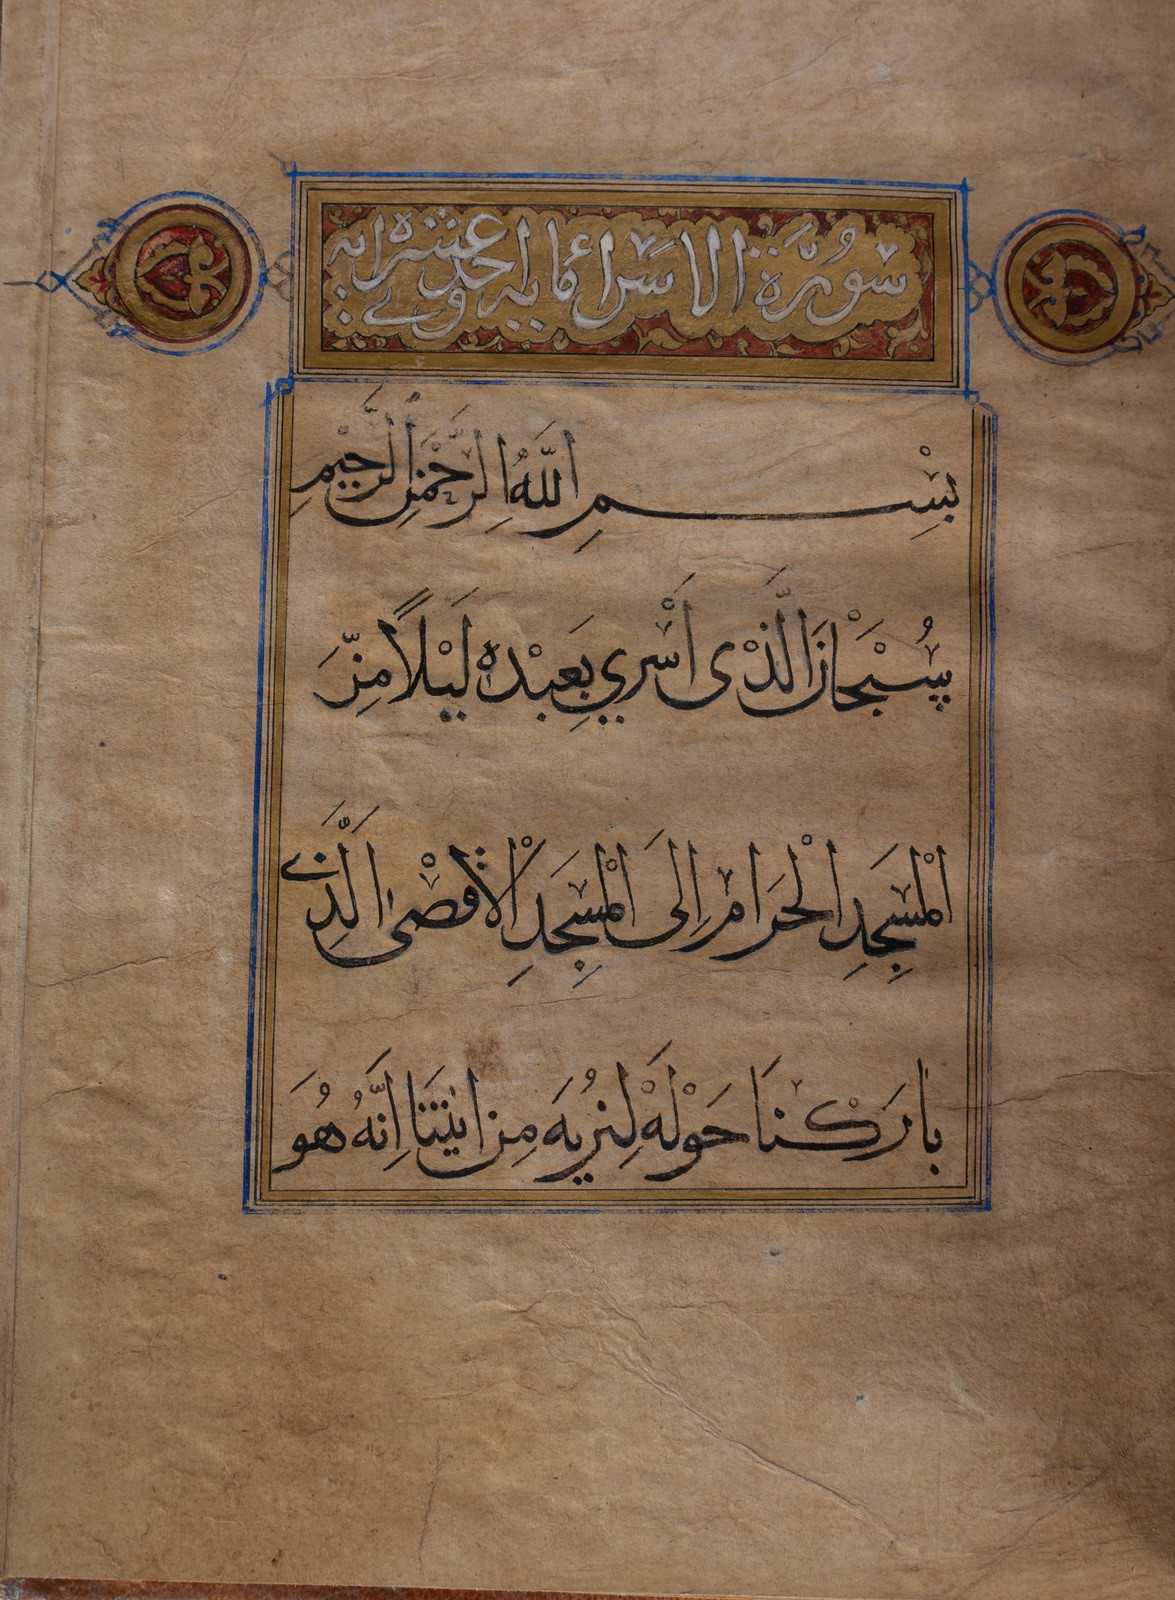 سورة الاسراء مایه احدی عشره ایه
بِسْمِ اللَّهِ الرَّحْمٰنِ الرَّحِيْمِ
سُبْحَانَ الَّذْى أَسْرٰي بِعَبْدِهٖ لَيْلًا مِنَّ
الْمَسْجِدِ الْحَرَامِ اِلَى الْمَسْجِدِ الْاَقْصٰى الَّذِي
بَارَكْنَا حَوْلَهٗ لِنُرِيَهُ مِنْ اٰيٰتِنَا اِنَّهُ هُوَ